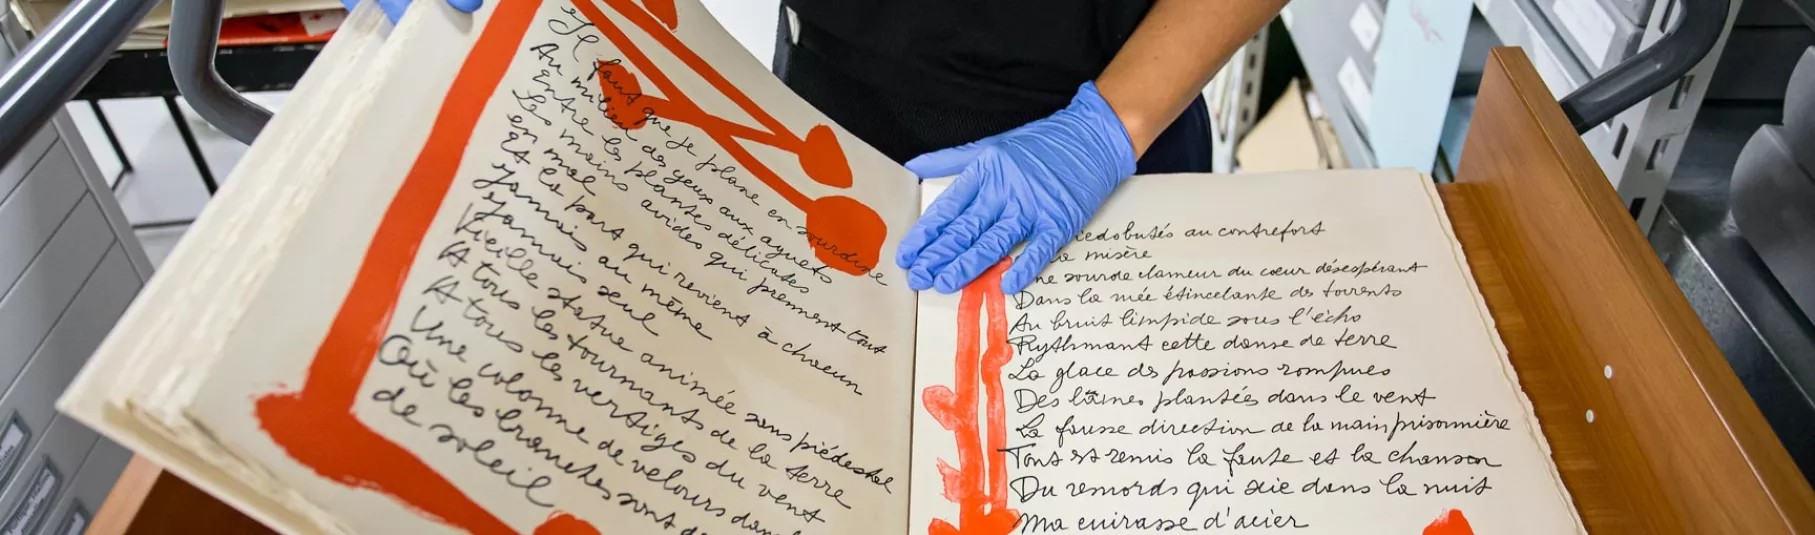 Il faut que je plane en sourdine
Au milieu des yeux aux aguets
Entre les plantes délicates
Les mains avides qui prennent tout
en mal
Et la part qui revient à chacun
Jamais au même
Jamais seul
Vieille statue animée sans piédestal
A tous les tournants de la terre
A tous les vertiges du vent
Une colonne de velours dans
Où les branches sont
de soleil
au contrefort
misère
sourde clameur du cœur désespérant
Dans la nuée étincelante des torrents
Au bruit limpide sous l'écho
Rythmant cette danse de terre
La glace des passions rompues
Des lames plantées dans le vent
La fausse direction de la main prisonnière
Tout est remis la faute et la chanson
Du remords qui scie dans la nuit
Ma cuirasse d'acier